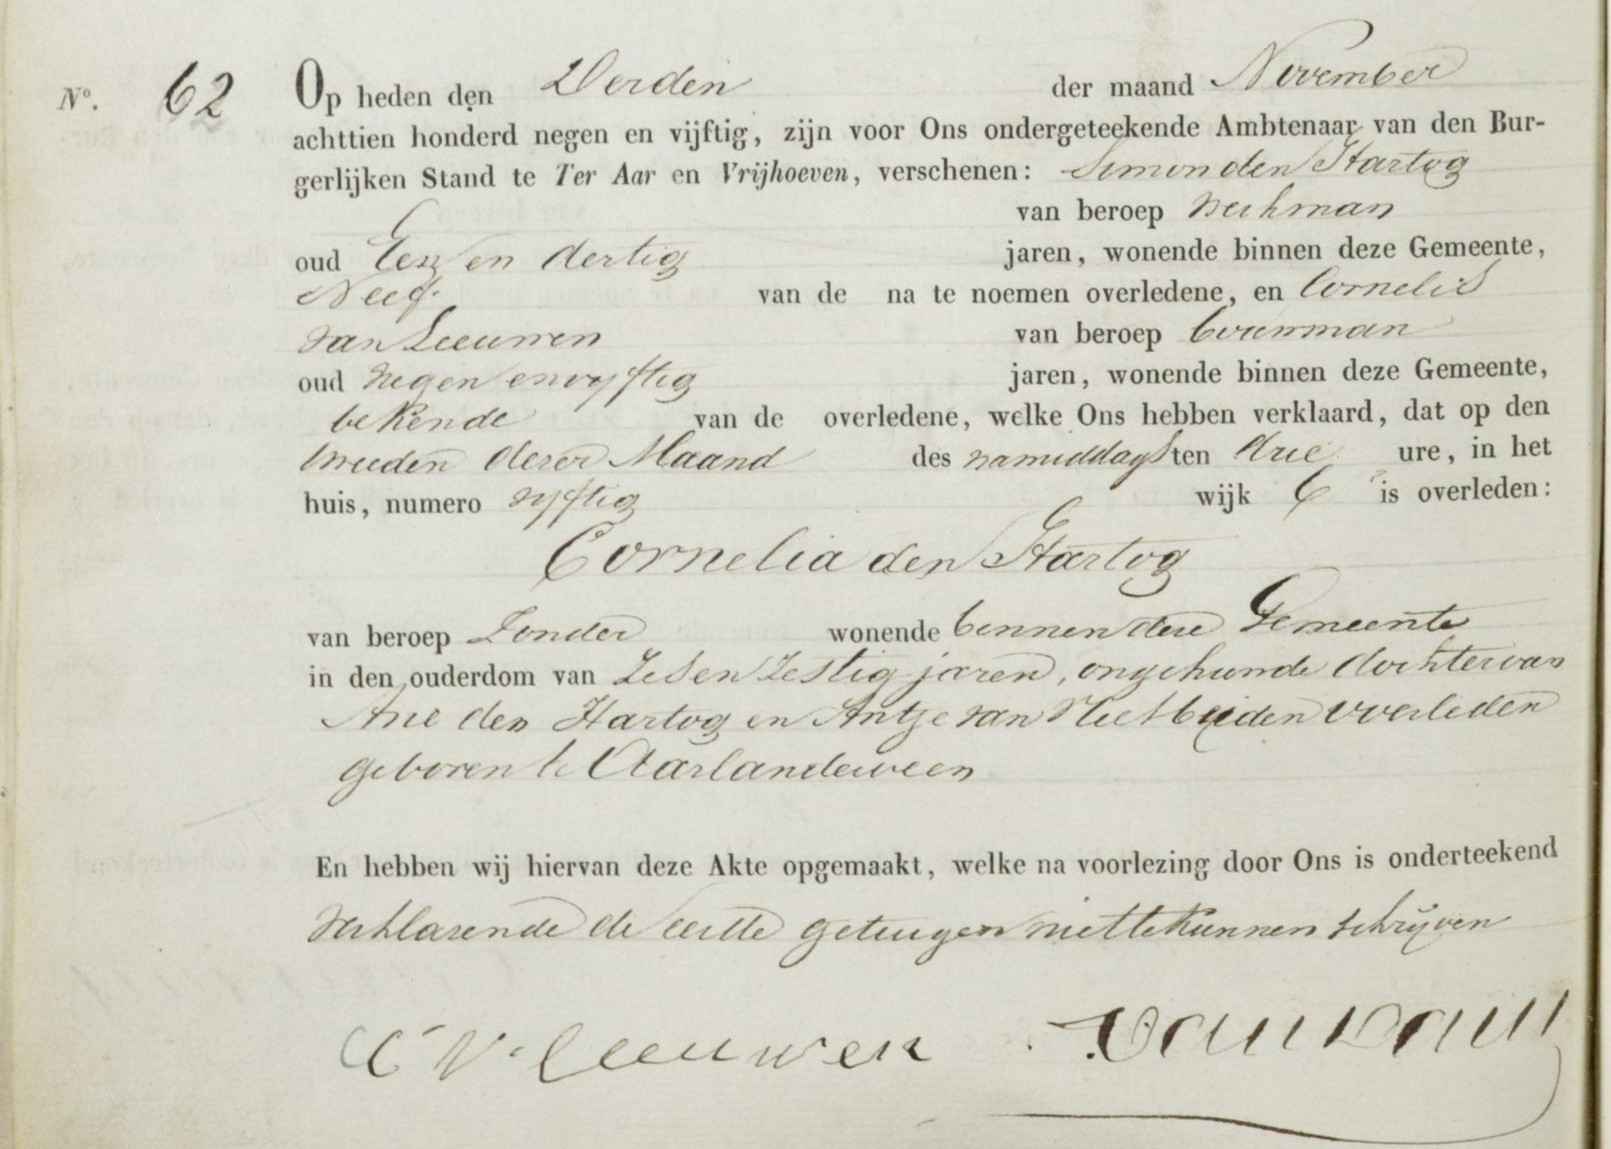 No. 62 Op heden den Derden der maand November
achttien honderd negen en vijftig, zijn voor Ons ondergeteekende Ambtenaar van den Bur-
gerlijken Stand te Ter Aar en Vrijhoeven, verschenen: Simon den Hartog
van beroep werkman
oud Een en dertig jaren, wonende binnen deze Gemeente,
Neef van de na te noemen overledene, en Cornelis
van Leeuwen van beroep bouwman
oud negen en vyftig jaren, wonende binnen deze Gemeente,
bekende van de overledene, welke Ons hebben verklaard, dat op den
tweeden dezer Maand des namiddags ten drie ure, in het
huis, numero vyftig wijk C is overleden:
Cornelia den Hartog
van beroep Zonder wonende binnen deze Gemeente
in den ouderdom van Zes en Zestig jaren, ongehuwde dochter van
Arie den Hartog en Antje van Vliet beiden overleden
geboren te Aarlanderveen
En hebben wij hiervan deze Akte opgemaakt, welke na voorlezing door Ons is onderteekend
verklarende de eerste getuigen niet te kunnen schrijven
C V. Leeuwen